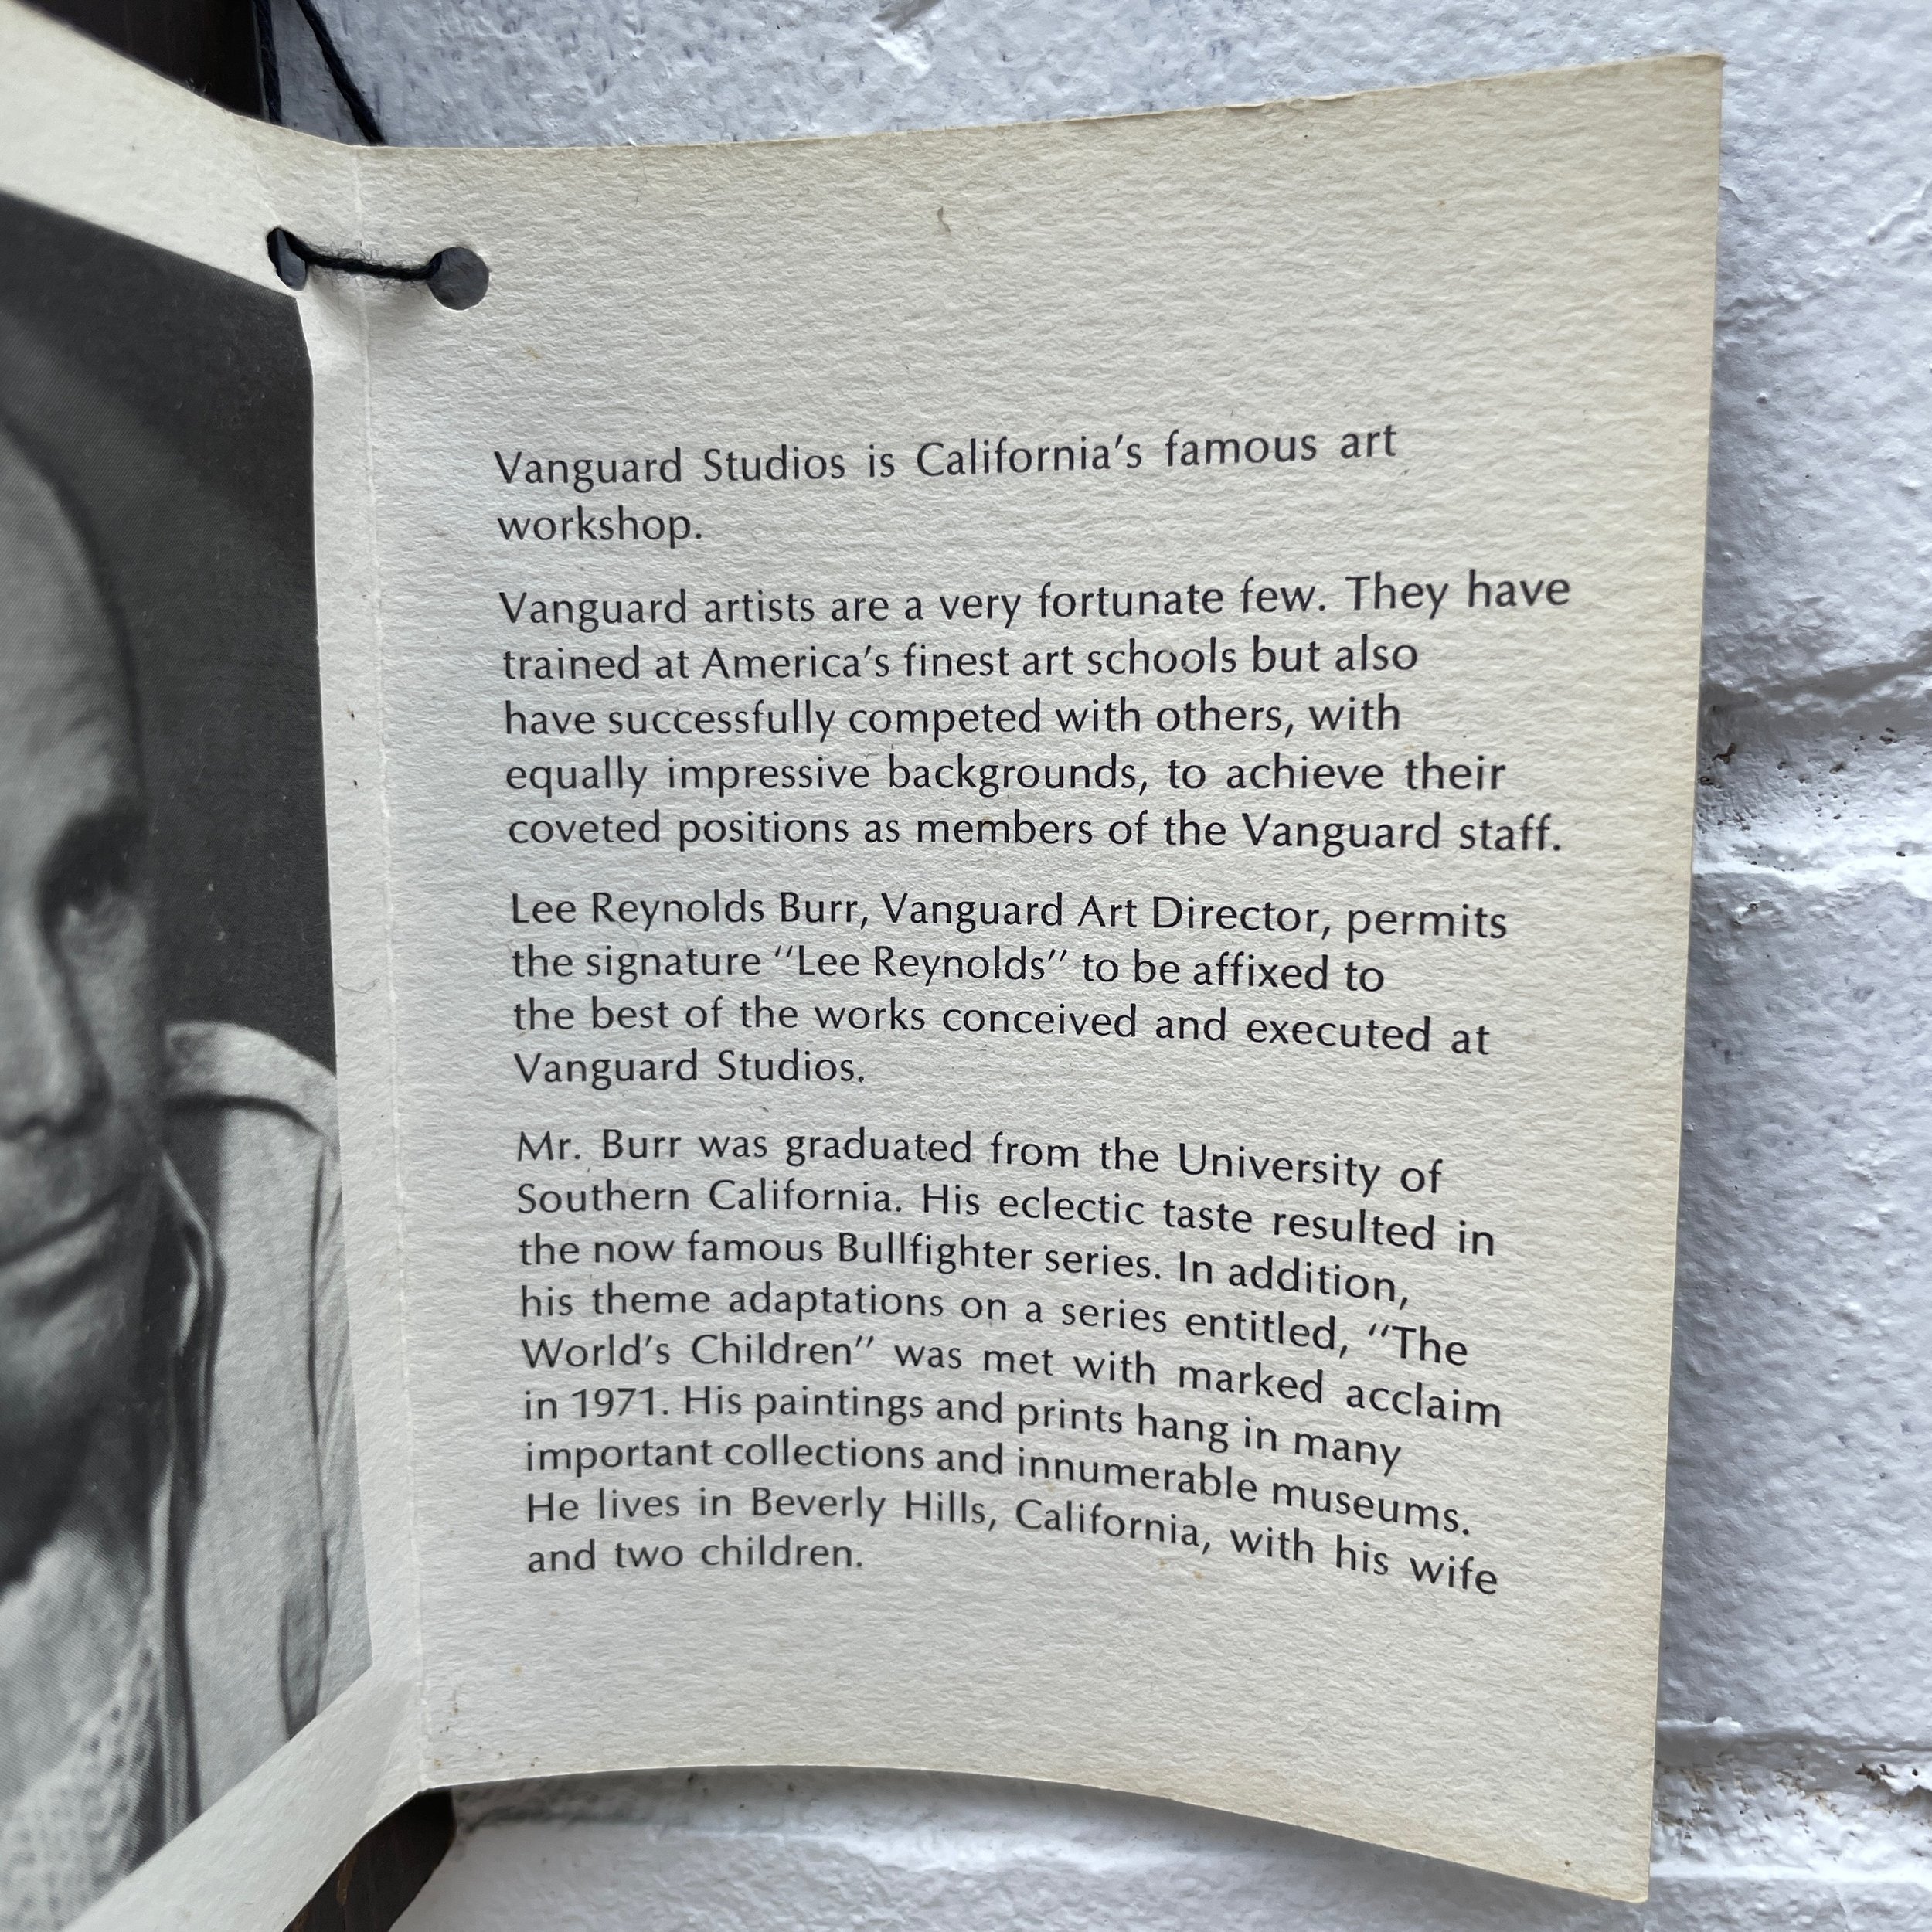 Vanguard Studios is California's famous art
workshop.
Vanguard artists are a very fortunate few. They have
trained at America's finest art schools but also
have successfully competed with others, with
equally impressive backgrounds, to achieve their
coveted positions as members of the Vanguard staff.
Lee Reynolds Burr, Vanguard Art Director, permits
the signature "Lee Reynolds" to be affixed to
the best of the works conceived and executed at
Vanguard Studios.
Mr. Burr was graduated from the University of
Southern California. His eclectic taste resulted in
the now famous Bullfighter series. In addition,
his theme adaptations on a series entitled, "The
World's Children" was met with marked acclaim
in 1971. His paintings and prints hang in many
important collections and innumerable museums.
He lives in Beverly Hills, California, with his wife
and two children.